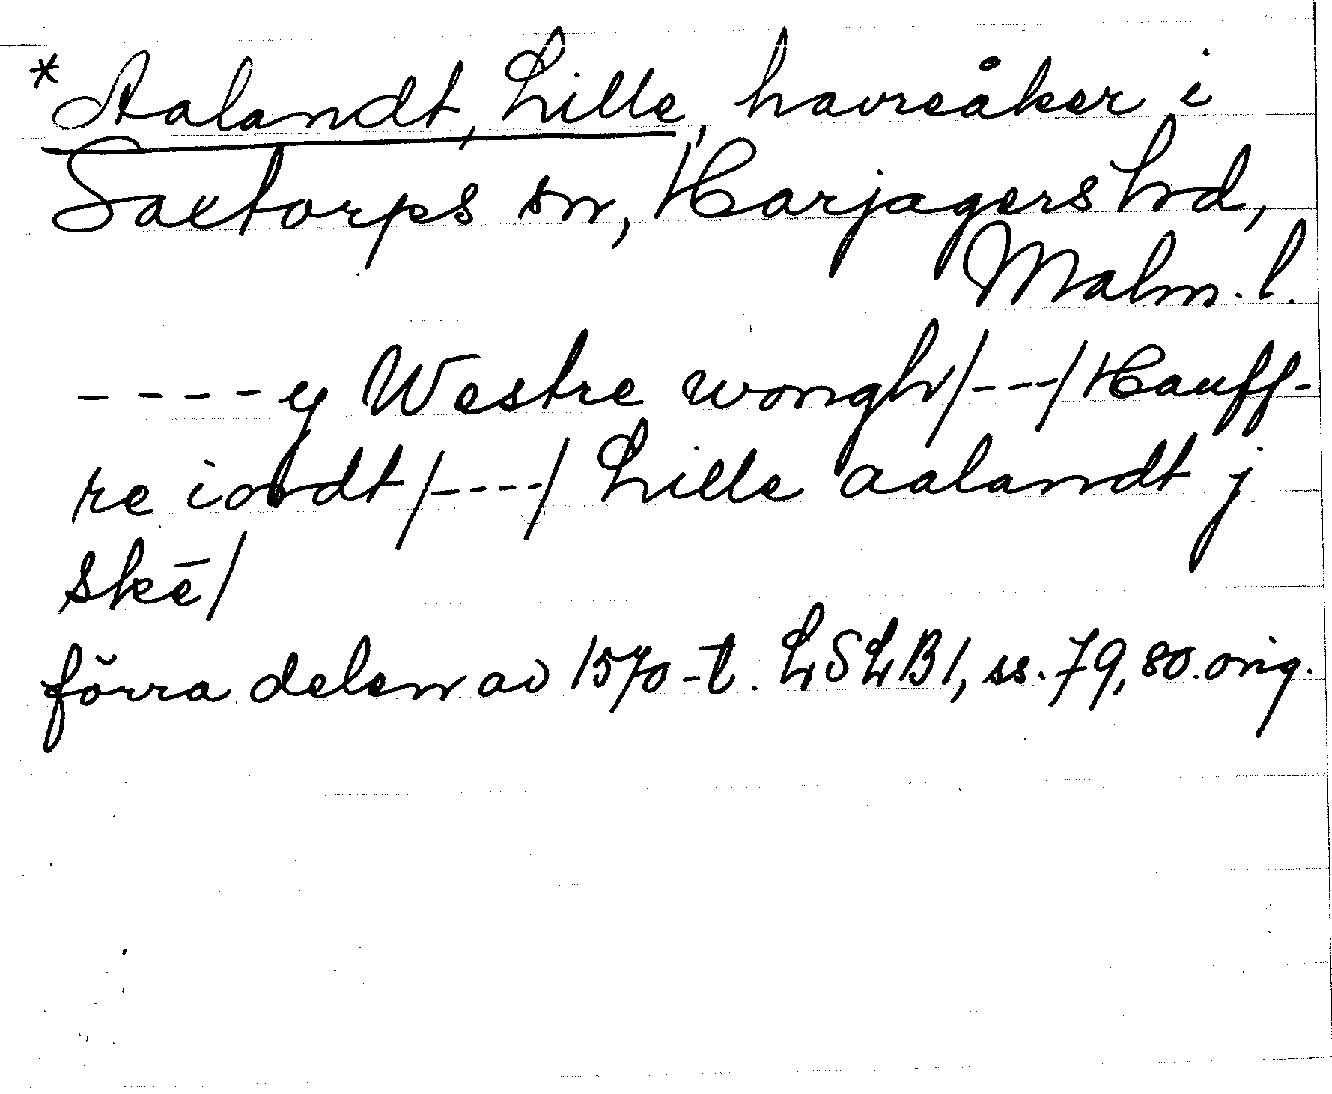 *Aalandt, Lille, havreåker i
Saxtorps sn, Harjagers hd,
Malm. l.
----y Westre wongh/---/Hauff-
re iordt/---/ Lille aalandt j
skē/
förra delen av 1570-t. LSLB1, ss. 79, 80. orig.